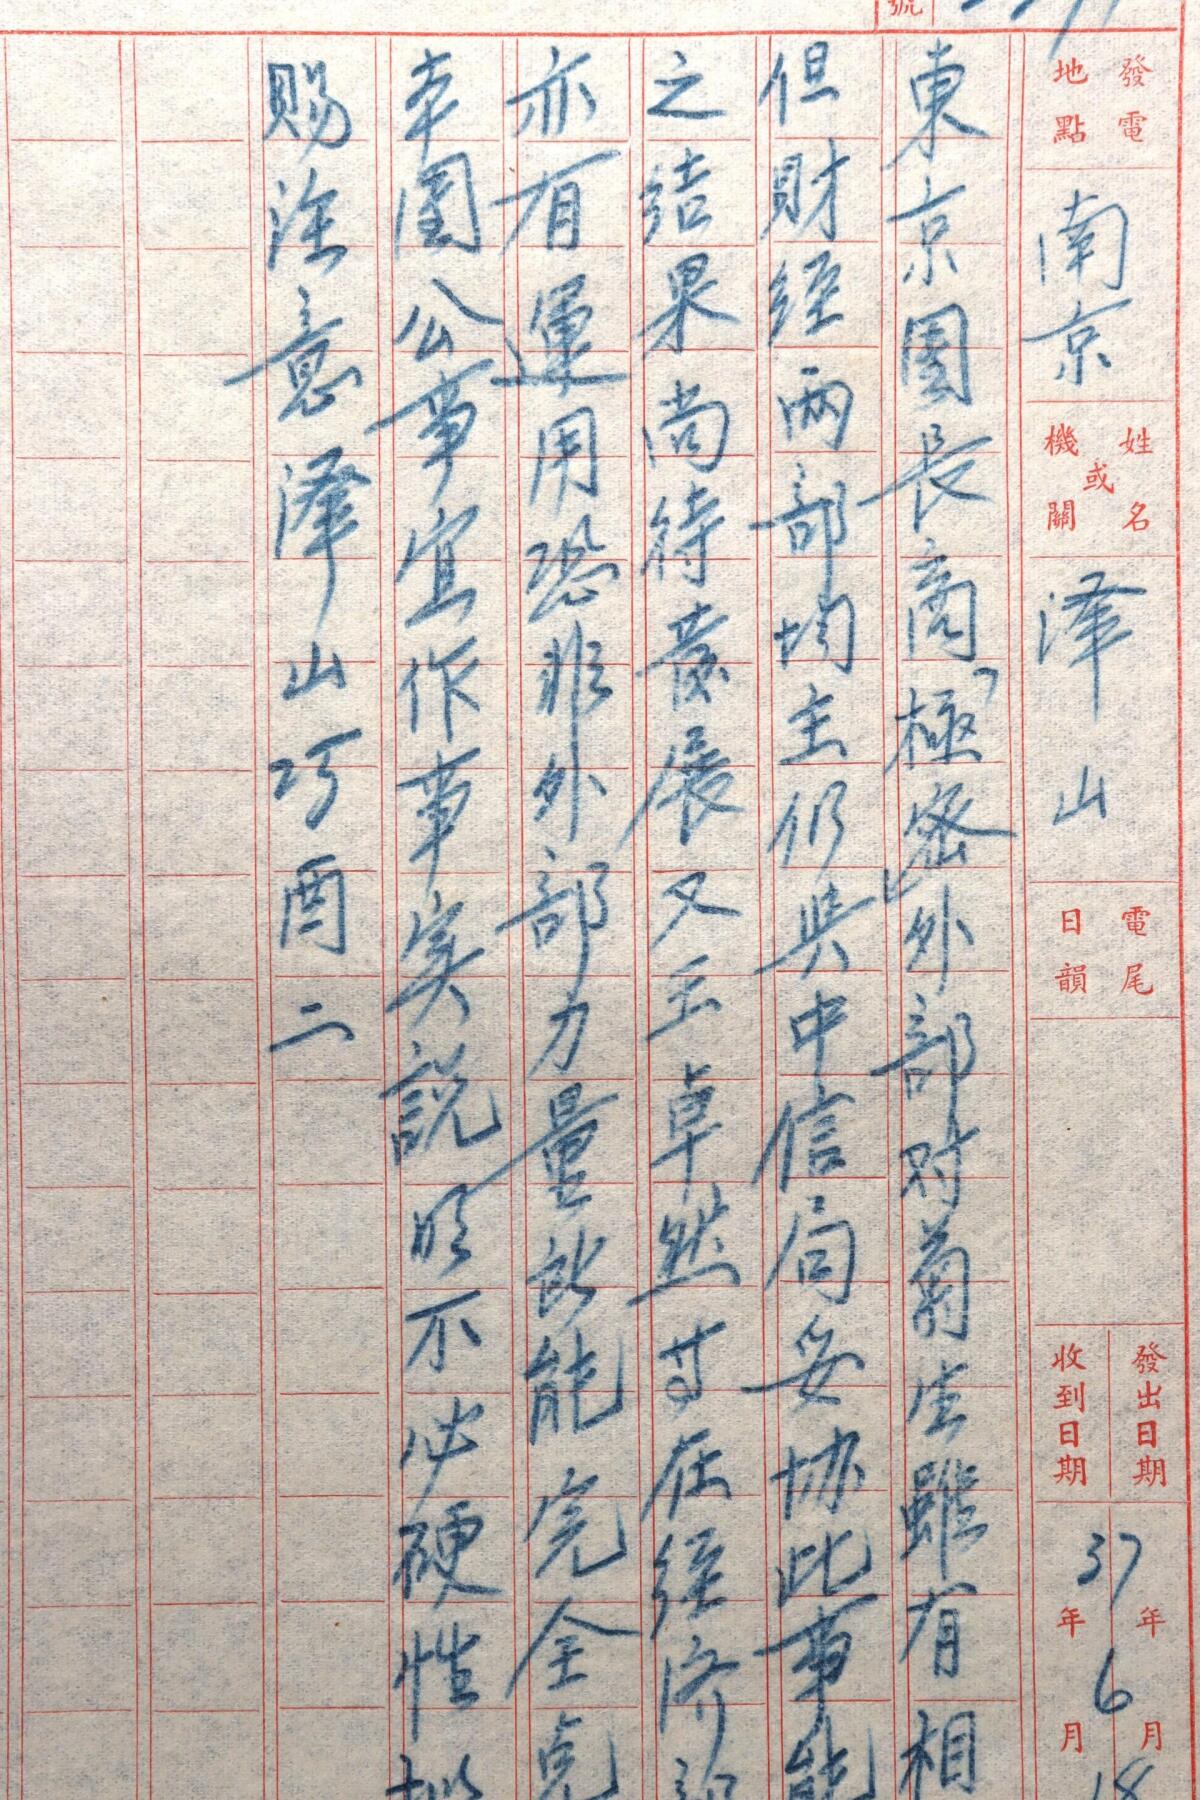 號
發電地點
南京
姓名或機關
澤山
電尾日韻
發出日期
收到日期
37年6月18
年月
東京團長商「極密」外部对翁生雖有相
但財經兩部均主仍與中信局妥協此事能
之结果尚待發展又王卓然等在经济
亦有運用恐非外部力量所能完全克
本團公事宜作事实説明不必硬性
賜注意澤山巧酉二